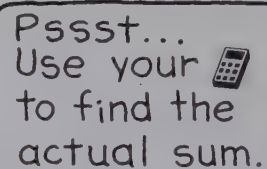 Pssst...
Use your
to find the
actual sum.